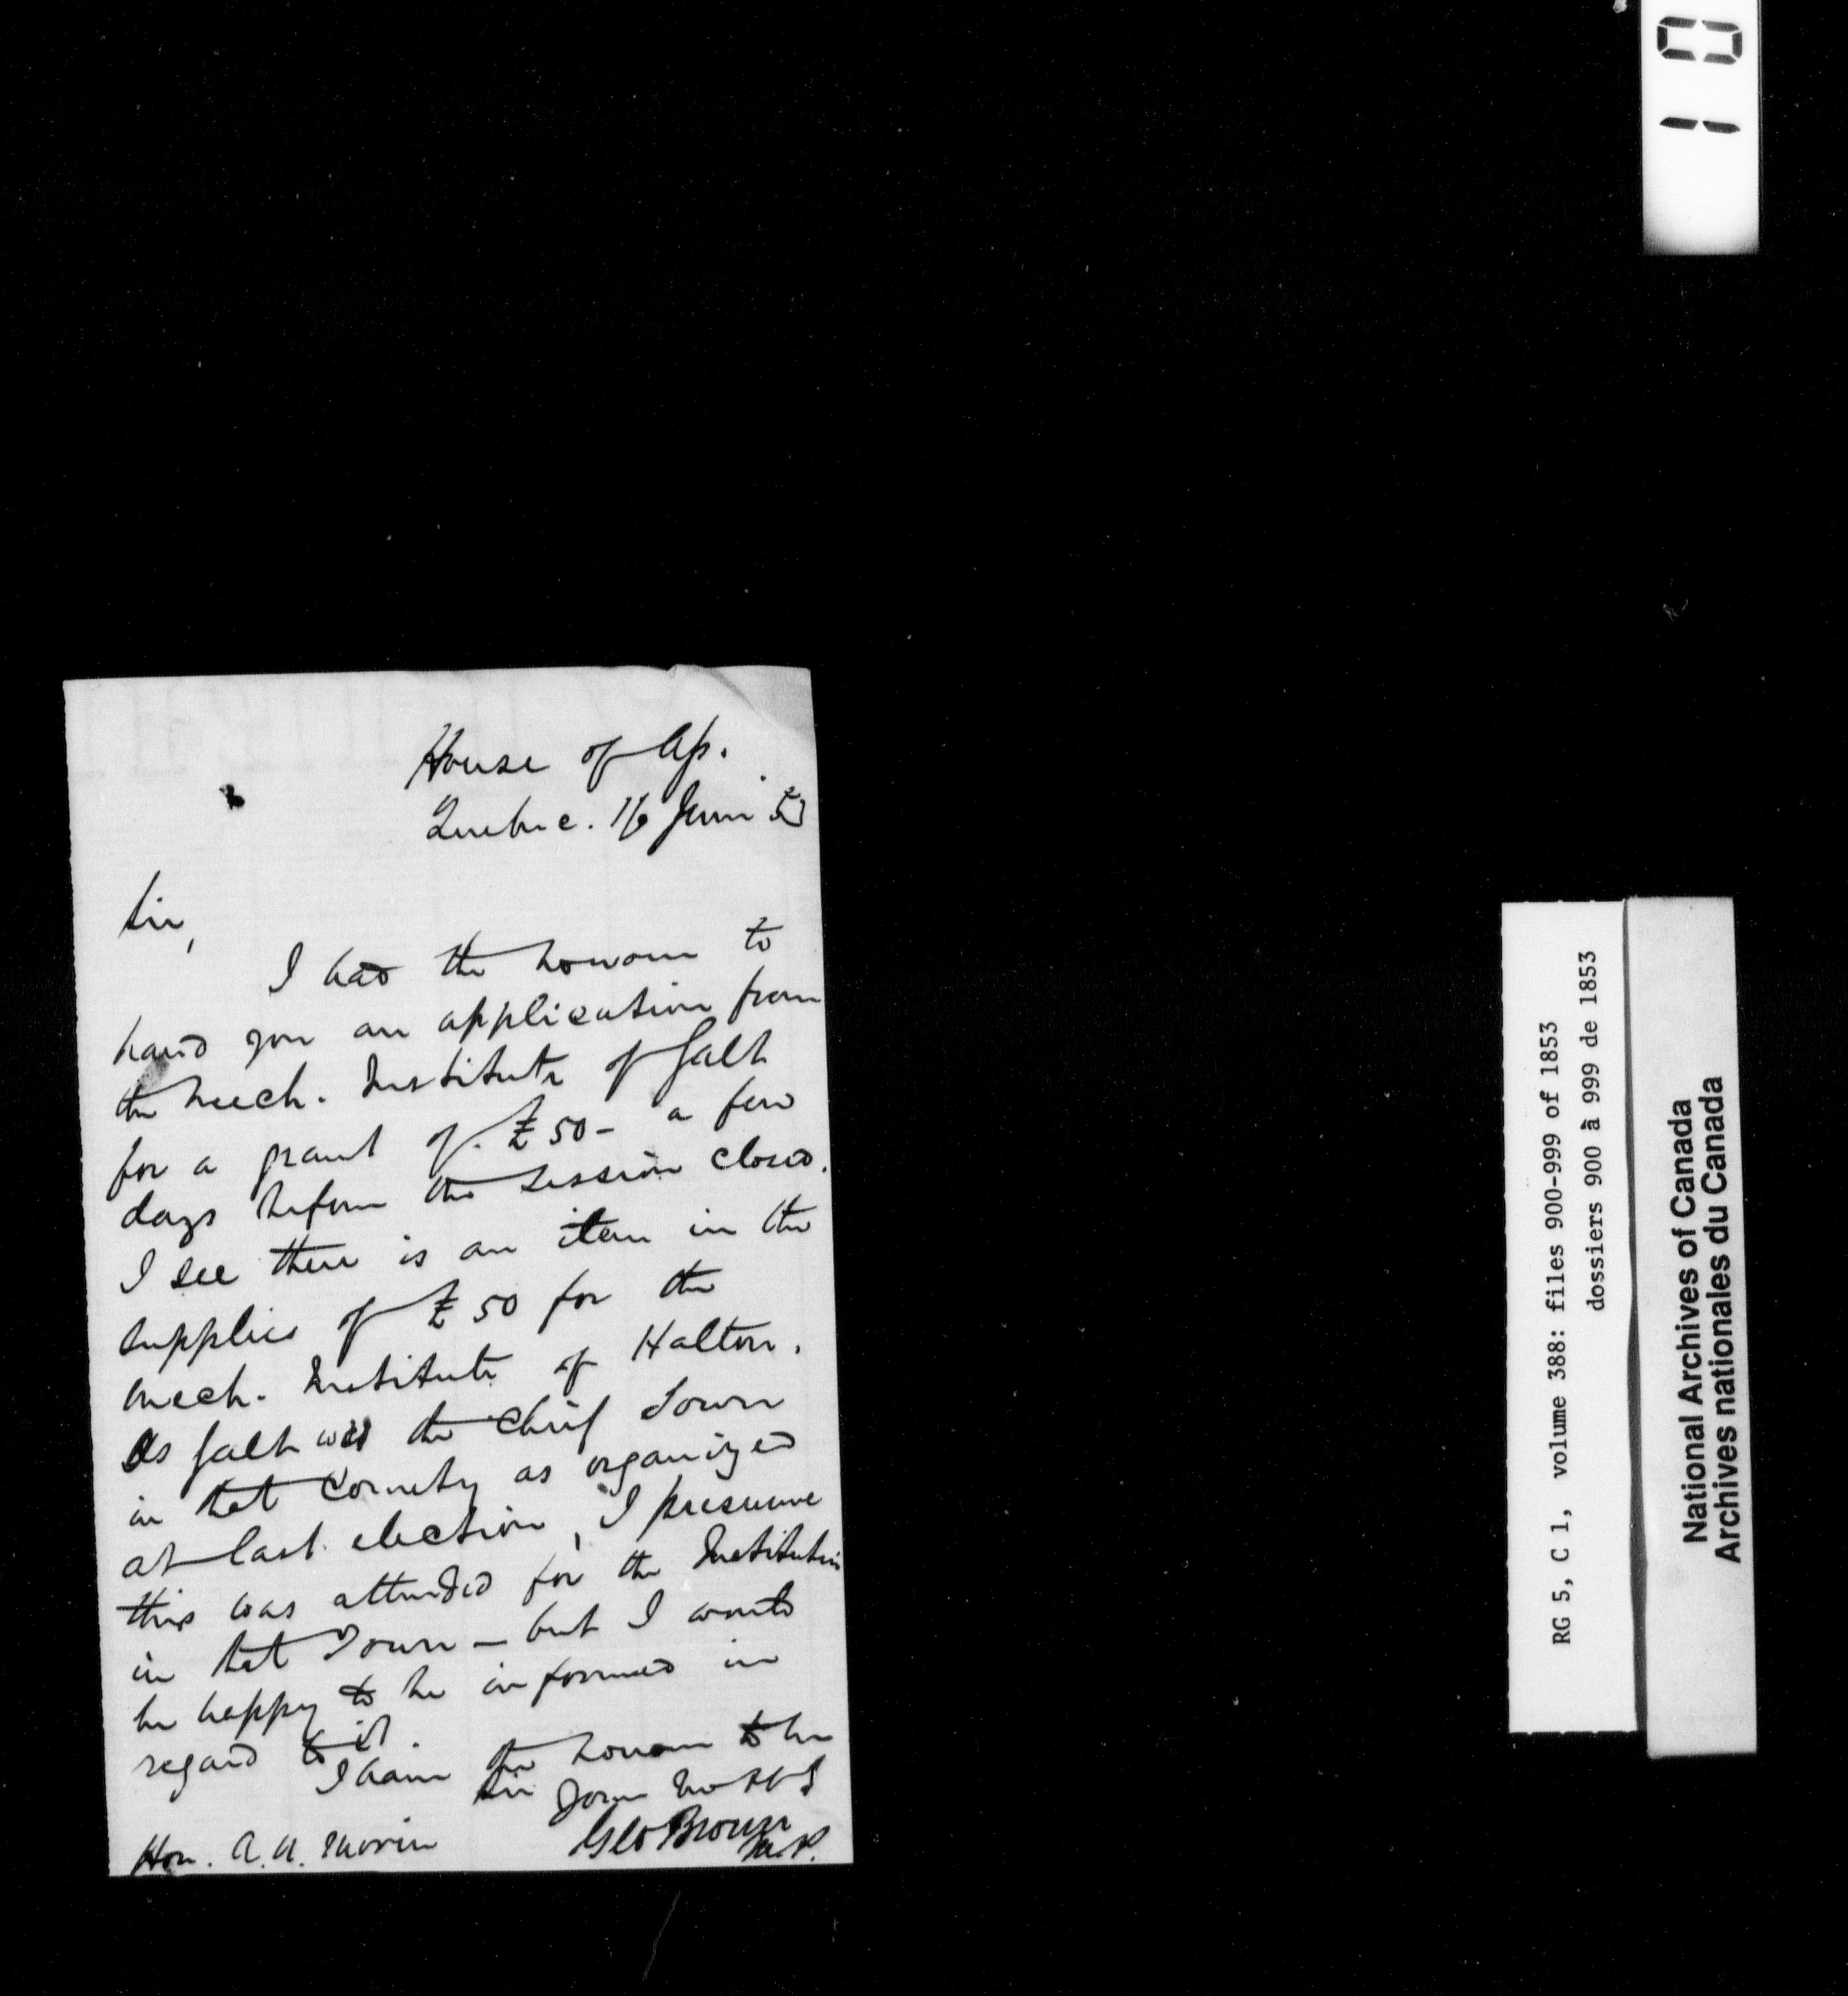 House of Ass.
Quebec. 16 June 53
Sir,
I had the honour to
hand you an application from
the Mech. Institute of Galt
for a grant of £50 - a few
days before the session closed.
I see there is an item in the
supplies of £50 for the
Mech. Institute of Halton.
As Galt was the chief Town
in that County as organized
at last election, I presume
this was attended for the Institution
in that Town - but I would
be happy to be informed in
regard to it.
I have the honour to be
Sir Your
Geo Brown
M.P.
Hon. A. N. Morin
10
RG 5, C 1, volume 388: files 900-999 of 1853
dossiers 900 à 999 de 1853
National Archives of Canada
Archives nationales du Canada